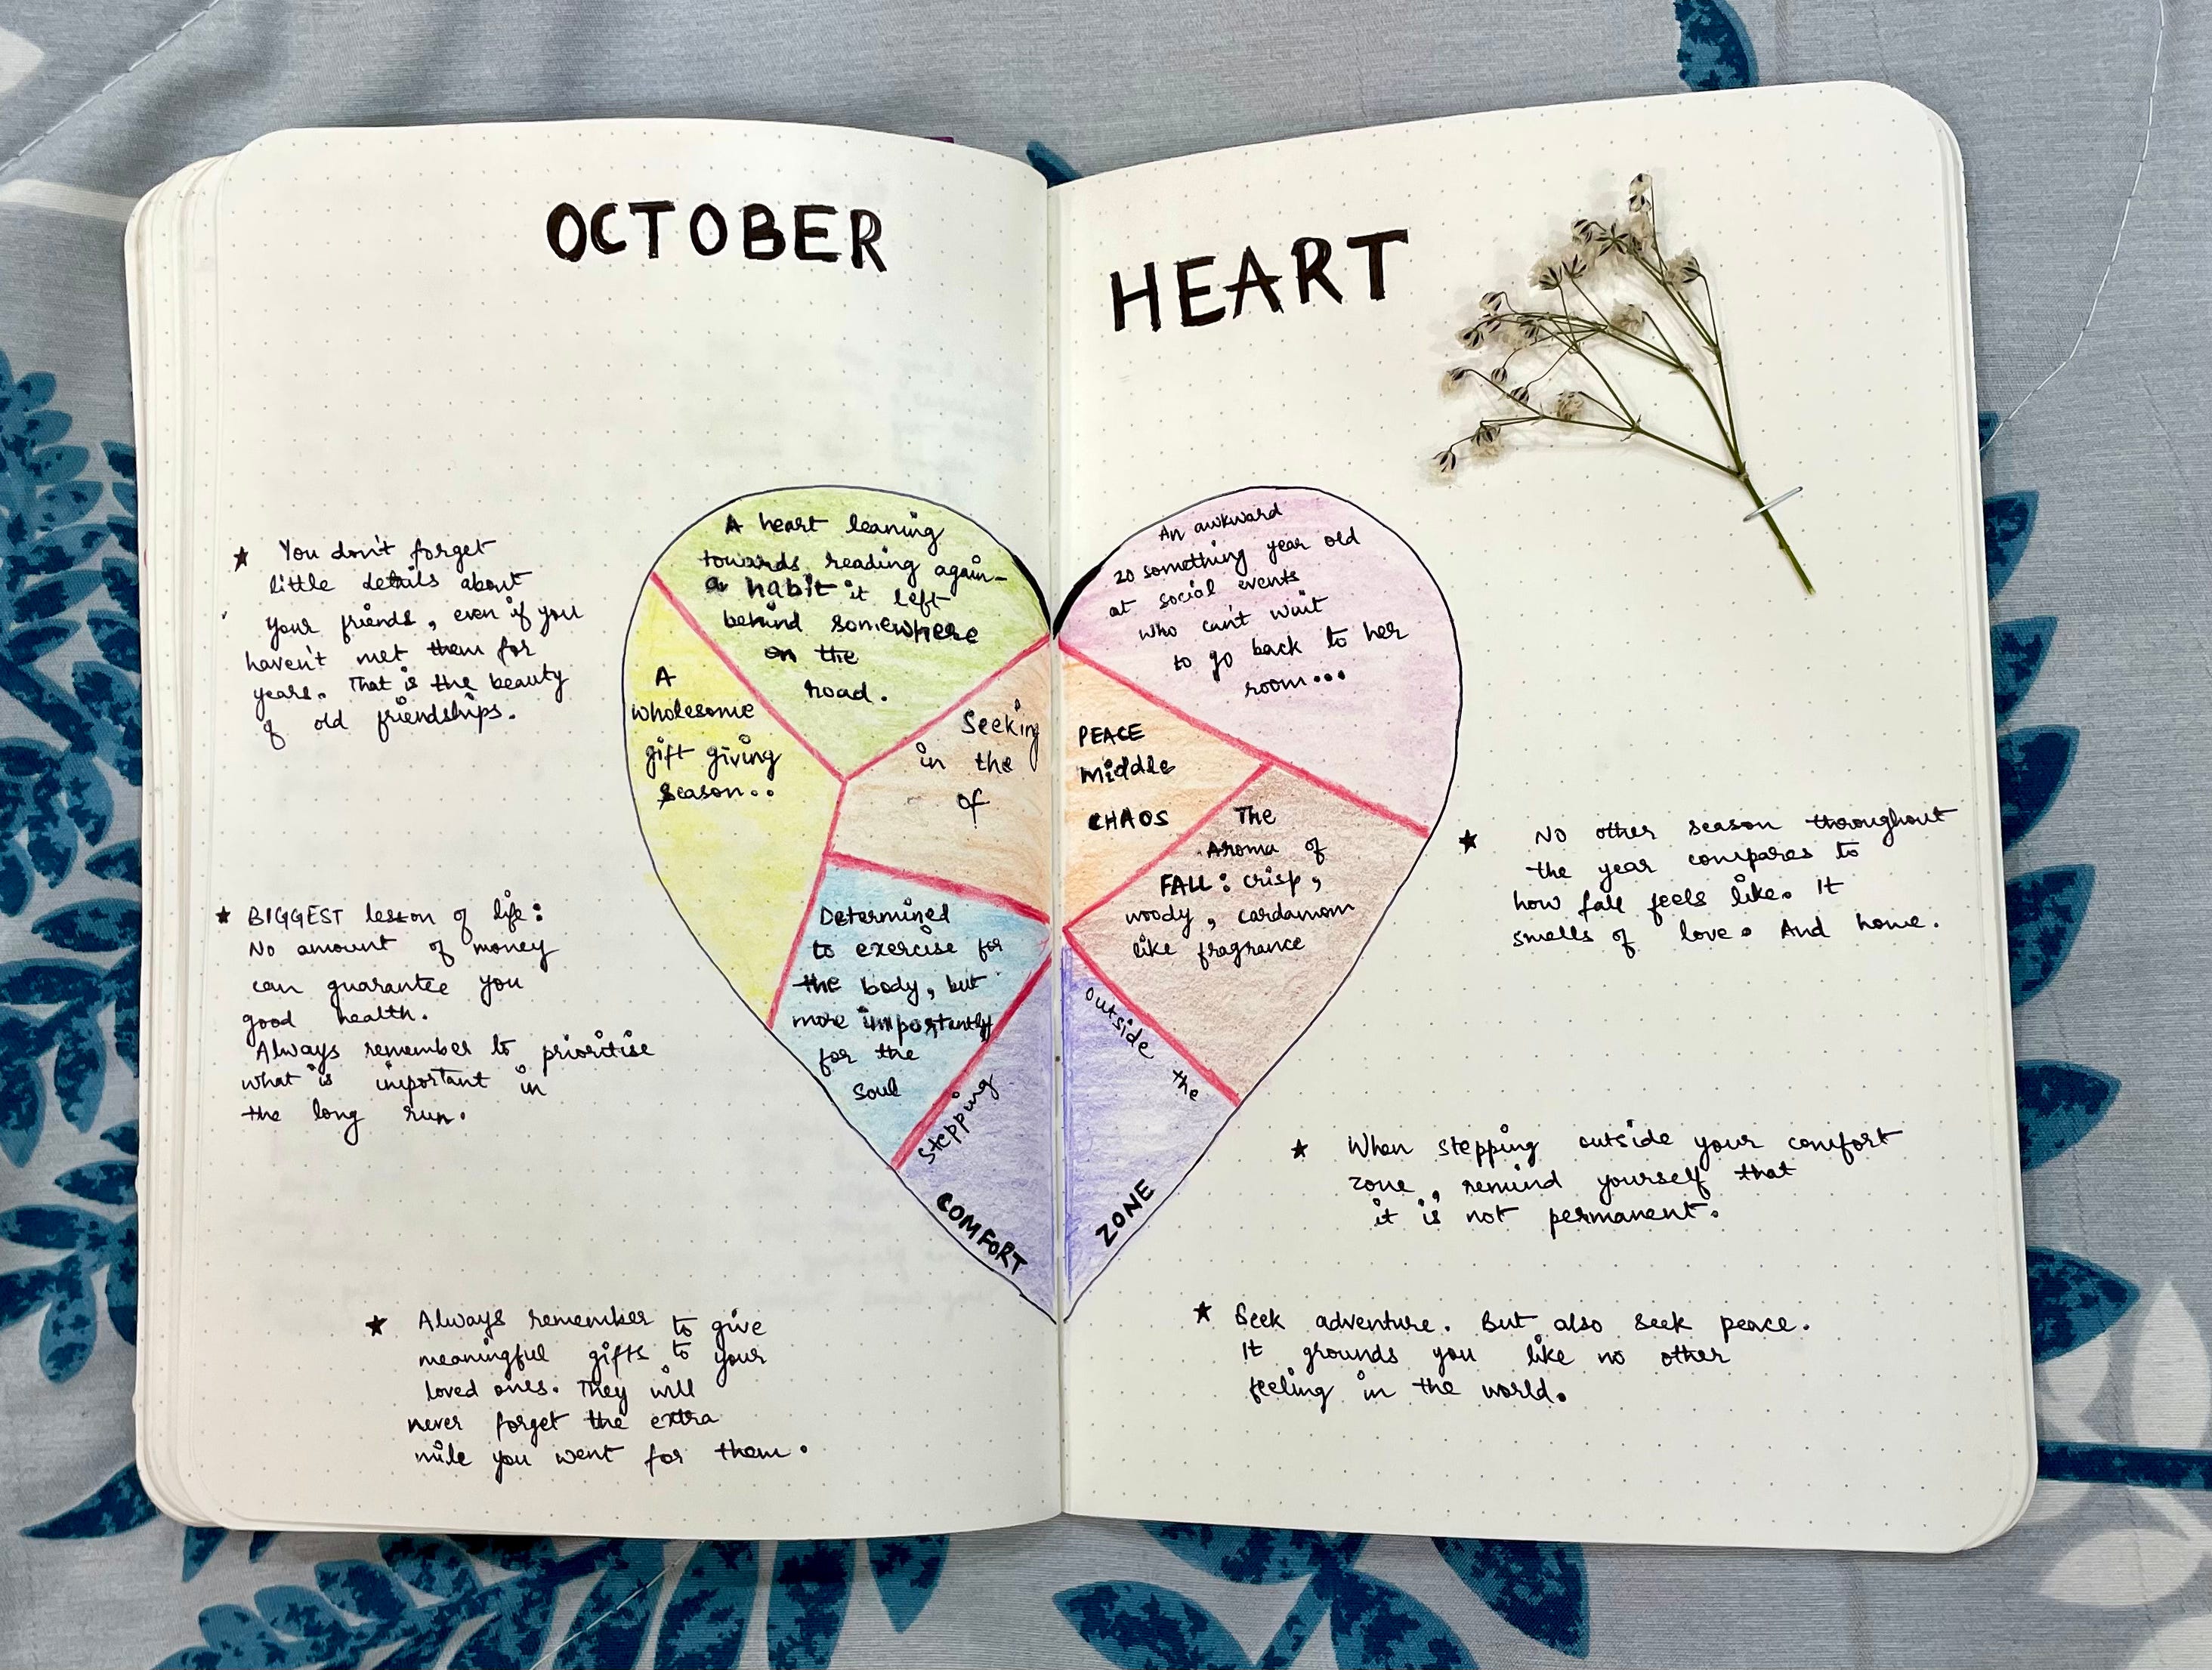 OCTOBER
HEART
★ You don't forget
little details about
your friends, even if you
haven't met them for
years. That is the beauty
of old friendships.
★ BIGGEST lesson of life:
No amount of money
can guarantee you
good health.
Always remember to prioritise
what is important in
the long run.
★ Always remember to give
meaningful gifts to your
loved ones. They will
never forget the extra
mile you went for them.
A heart leaning
towards reading again-
a habit it left
behind somewhere
on the
road.
A
wholesome
gift giving
season..
Seeking PEACE
in the middle
of CHAOS
Determined
to exercise for
the body, but
more importantly
for the
soul
An awkward
20 something year old
at social events
who can't wait
to go back to her
room...
The
Aroma of
FALL: crisp,
woody, cardamom
like fragrance
stepping outside the
COMFORT ZONE
★ No other season throughout
the year compares to
how fall feels like. It
smells of love. And home.
★ When stepping outside your comfort
zone, remind yourself that
it is not permanent.
★ Seek adventure. But also seek peace.
It grounds you like no other
feeling in the world.